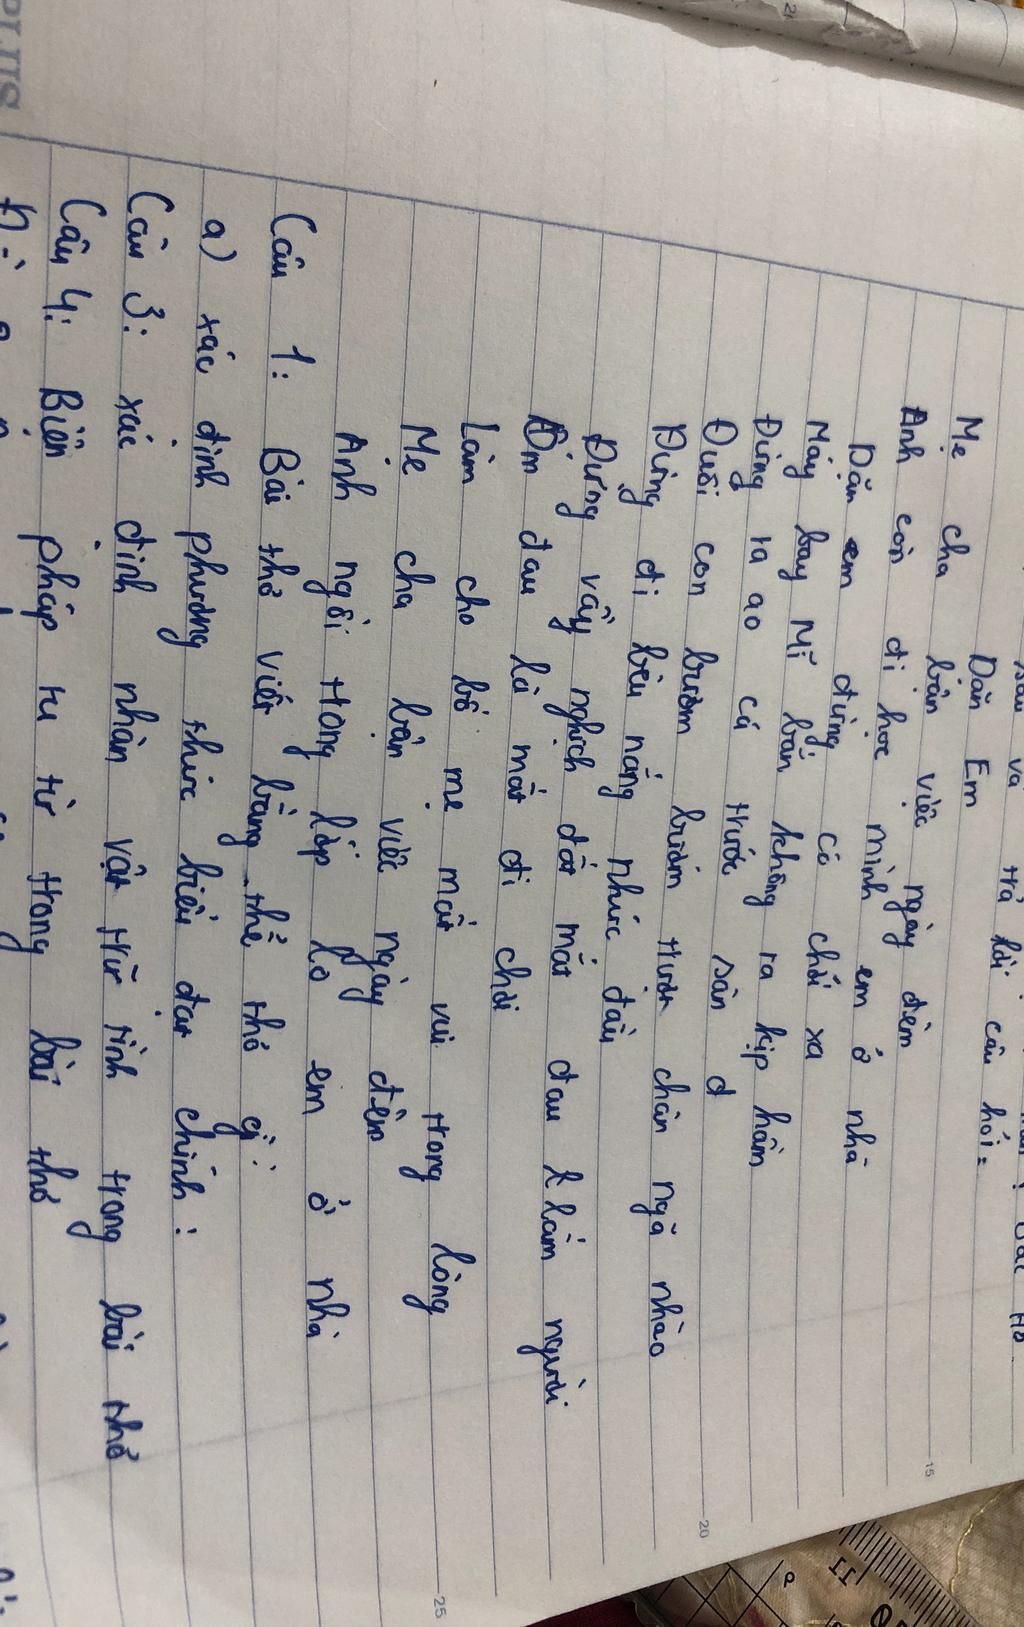 và trả lời câu hỏi:
Dặn Em
Mẹ cha bận việc ngày đêm
Anh còn đi học mình em ở nhà
Dặn em đừng có chơi xa
Máy bay Mĩ bắn không ra kịp hầm
Đừng ra ao cá trước sân
Đuổi con bươm bướm trượt chân ngã nhào
Đừng đi bêu nắng nhức đầu
Đừng vầy nghịch đất mắt đau lấm người
Ốm đau là mất đi chơi
Làm cho bố mẹ mất vui trong lòng
Mẹ cha bận việc ngày đêm
Anh ngồi trong lớp lo em ở nhà
Câu 1: Bài thơ viết bằng thể thơ gì:
a) xác định phương thức biểu đạt chính:
Câu 3: xác định nhân vật trữ tình trong bài thơ
Câu 4: Biện pháp tu từ trong bài thơ
PLUS
15
20
25